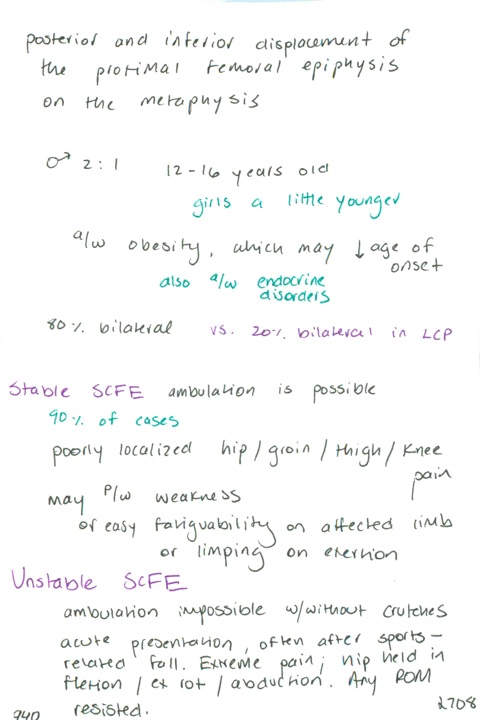 posterior and inferior displacement of
the proximal femoral epiphysis
on the metaphysis
♂ 2:1 12-16 years old
girls a little younger
a/w obesity, which may ↓ age of
onset
also a/w endocrine
disorders
80% bilateral vs. 20% bilateral in LCP
Stable SCFE ambulation is possible
90% of cases
poorly localized hip / groin / thigh / knee
pain
may p/w weakness
or easy fatiguability on affected limb
or limping on exertion
Unstable SCFE
ambulation impossible w/without crutches
acute presentation, often after sports-
related fall. Extreme pain; hip held in
flexion / ex rot / abduction. Any ROM
resisted.
940 2708